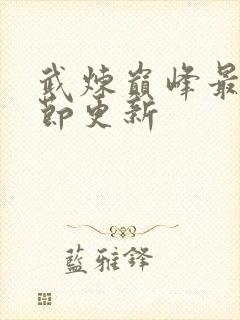 武煉巔峰最
節更新
藍雅鋒